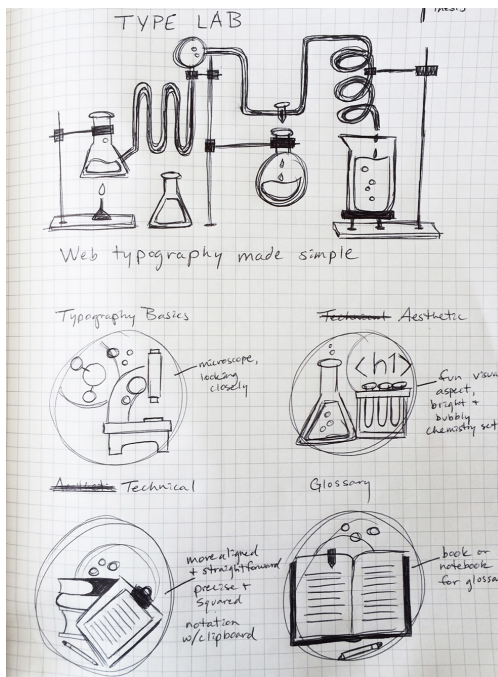 TYPE LAB
Thesis
Web typography made simple
Typography Basics
microscope,
looking
closely
Technical Aesthetic
<h1>
fun visual
aspect,
bright +
bubbly
chemistry set
Aesthetic Technical
more aligned
+ straightforward
precise +
squared
notation
w/clipboard
Glossary
book or
notebook
for glossa